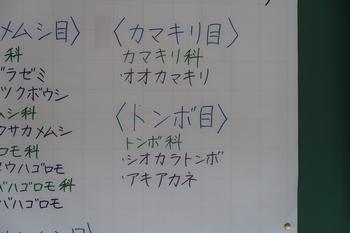 メムシ目〉
科
ブラゼミ
ツクボウシ
ムシ科
クサカメムシ
ロモ科
ウハゴロモ
バハゴロモ科
バハゴロモ
〈カマキリ目〉
カマキリ科
・オオカマキリ
〈トンボ目〉
トンボ科
・シオカラトンボ
・アキアカネ